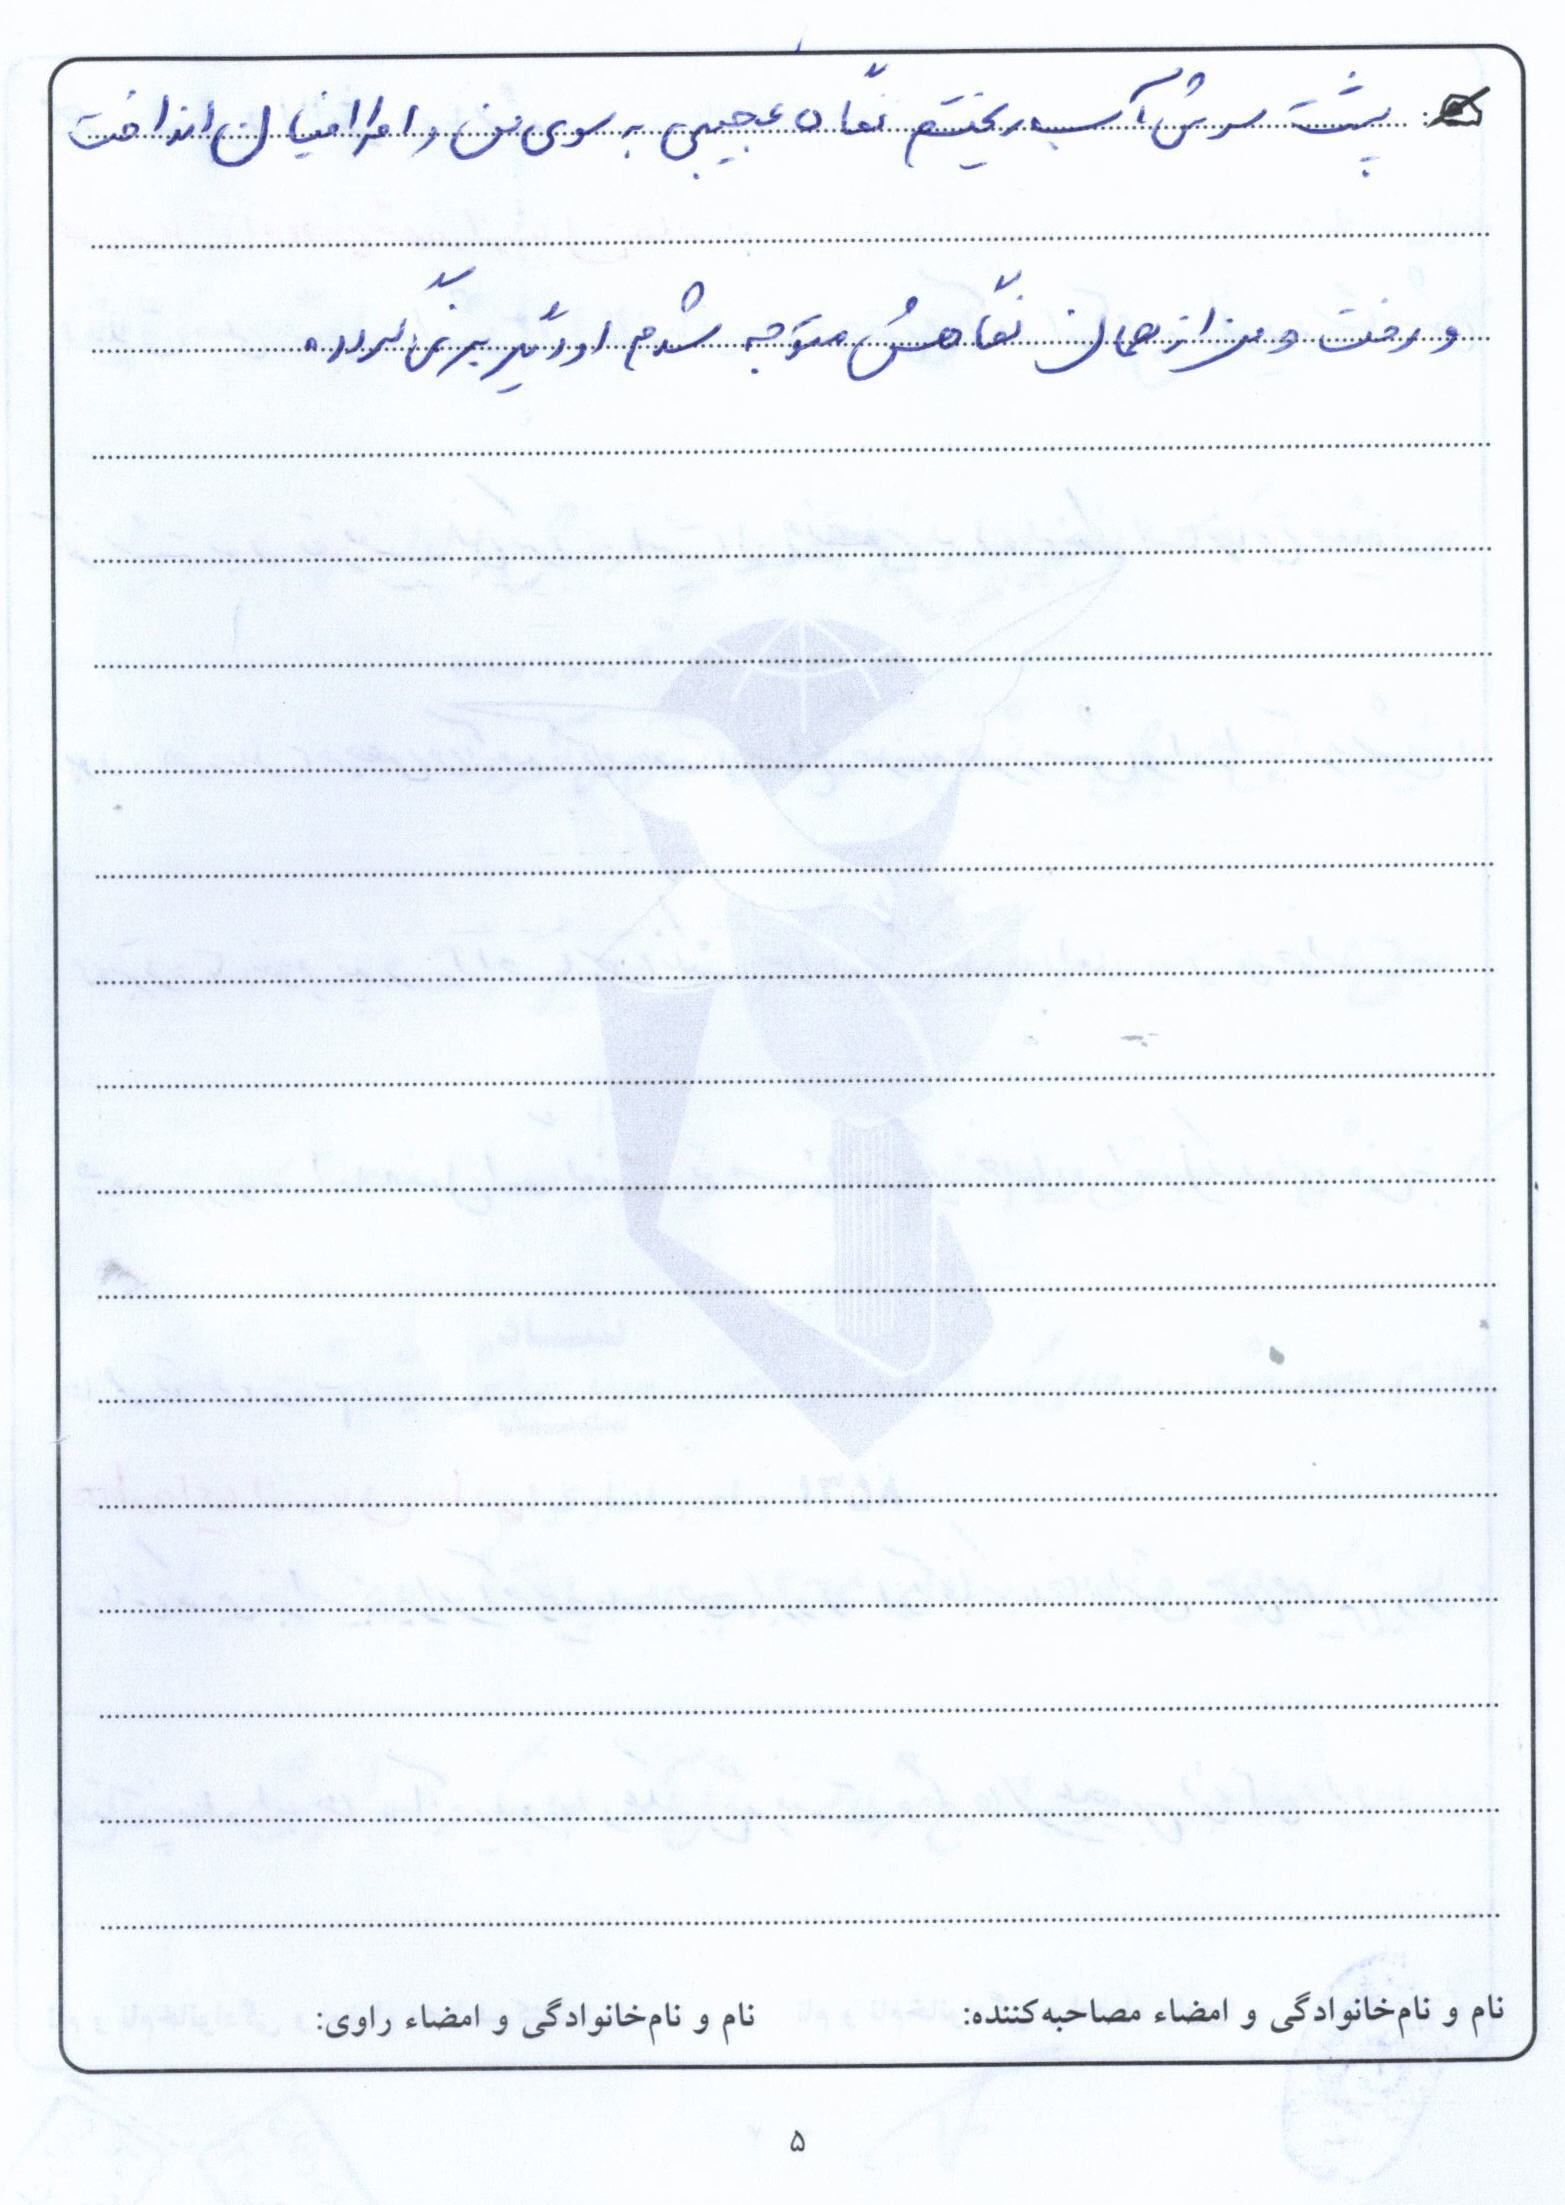 پشت سرش آب ریختم نگاه عجیبی به سوی من و اطرافیان انداخت
و رفت و من از همان نگاهش متوجه شدم او دیگر برنمی گردد.
نام و نام‌خانوادگی و امضاء مصاحبه‌کننده: نام و نام‌خانوادگی و امضاء راوی:
۵